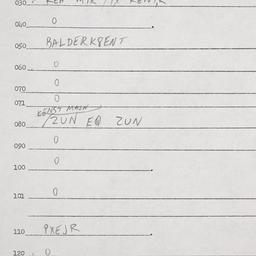 030
040 0
BALDERKBENT
050
060 0
070 0
071 0
080 /ZUN EQ ZUN
090 0
100 0
101 0
110 PXEJR
120 0